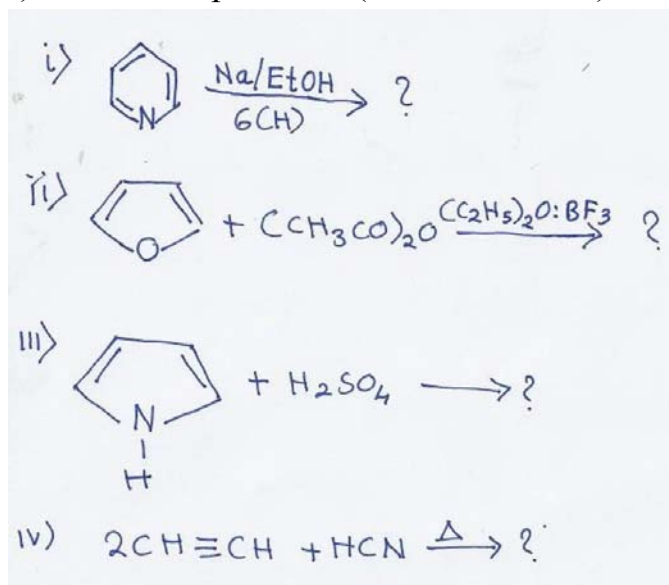 i) N Na/EtOH 6(H) → ?
ii) O + (CH₃CO)₂O (C₂H₅)₂O:BF₃ → ?
iii) N H + H₂SO₄ → ?
iv) 2CH≡CH + HCN Δ → ?